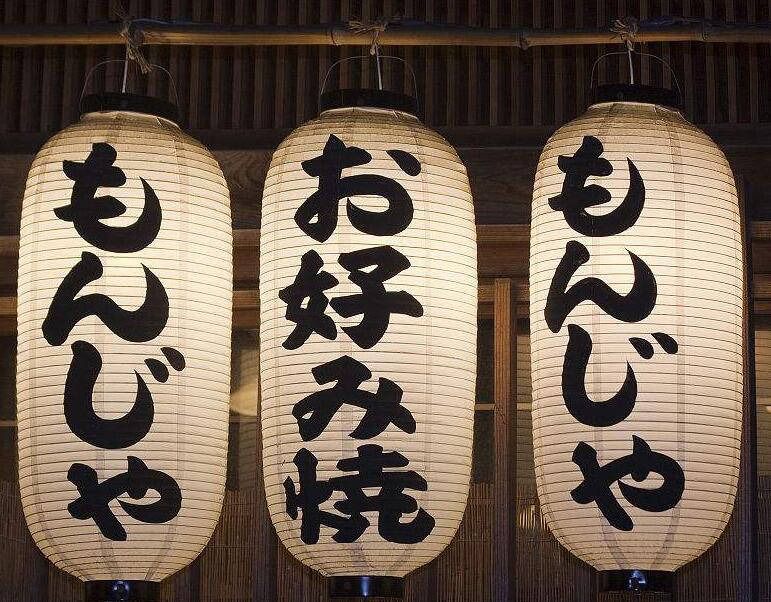 もんじゃ
お好み焼
もんじゃ